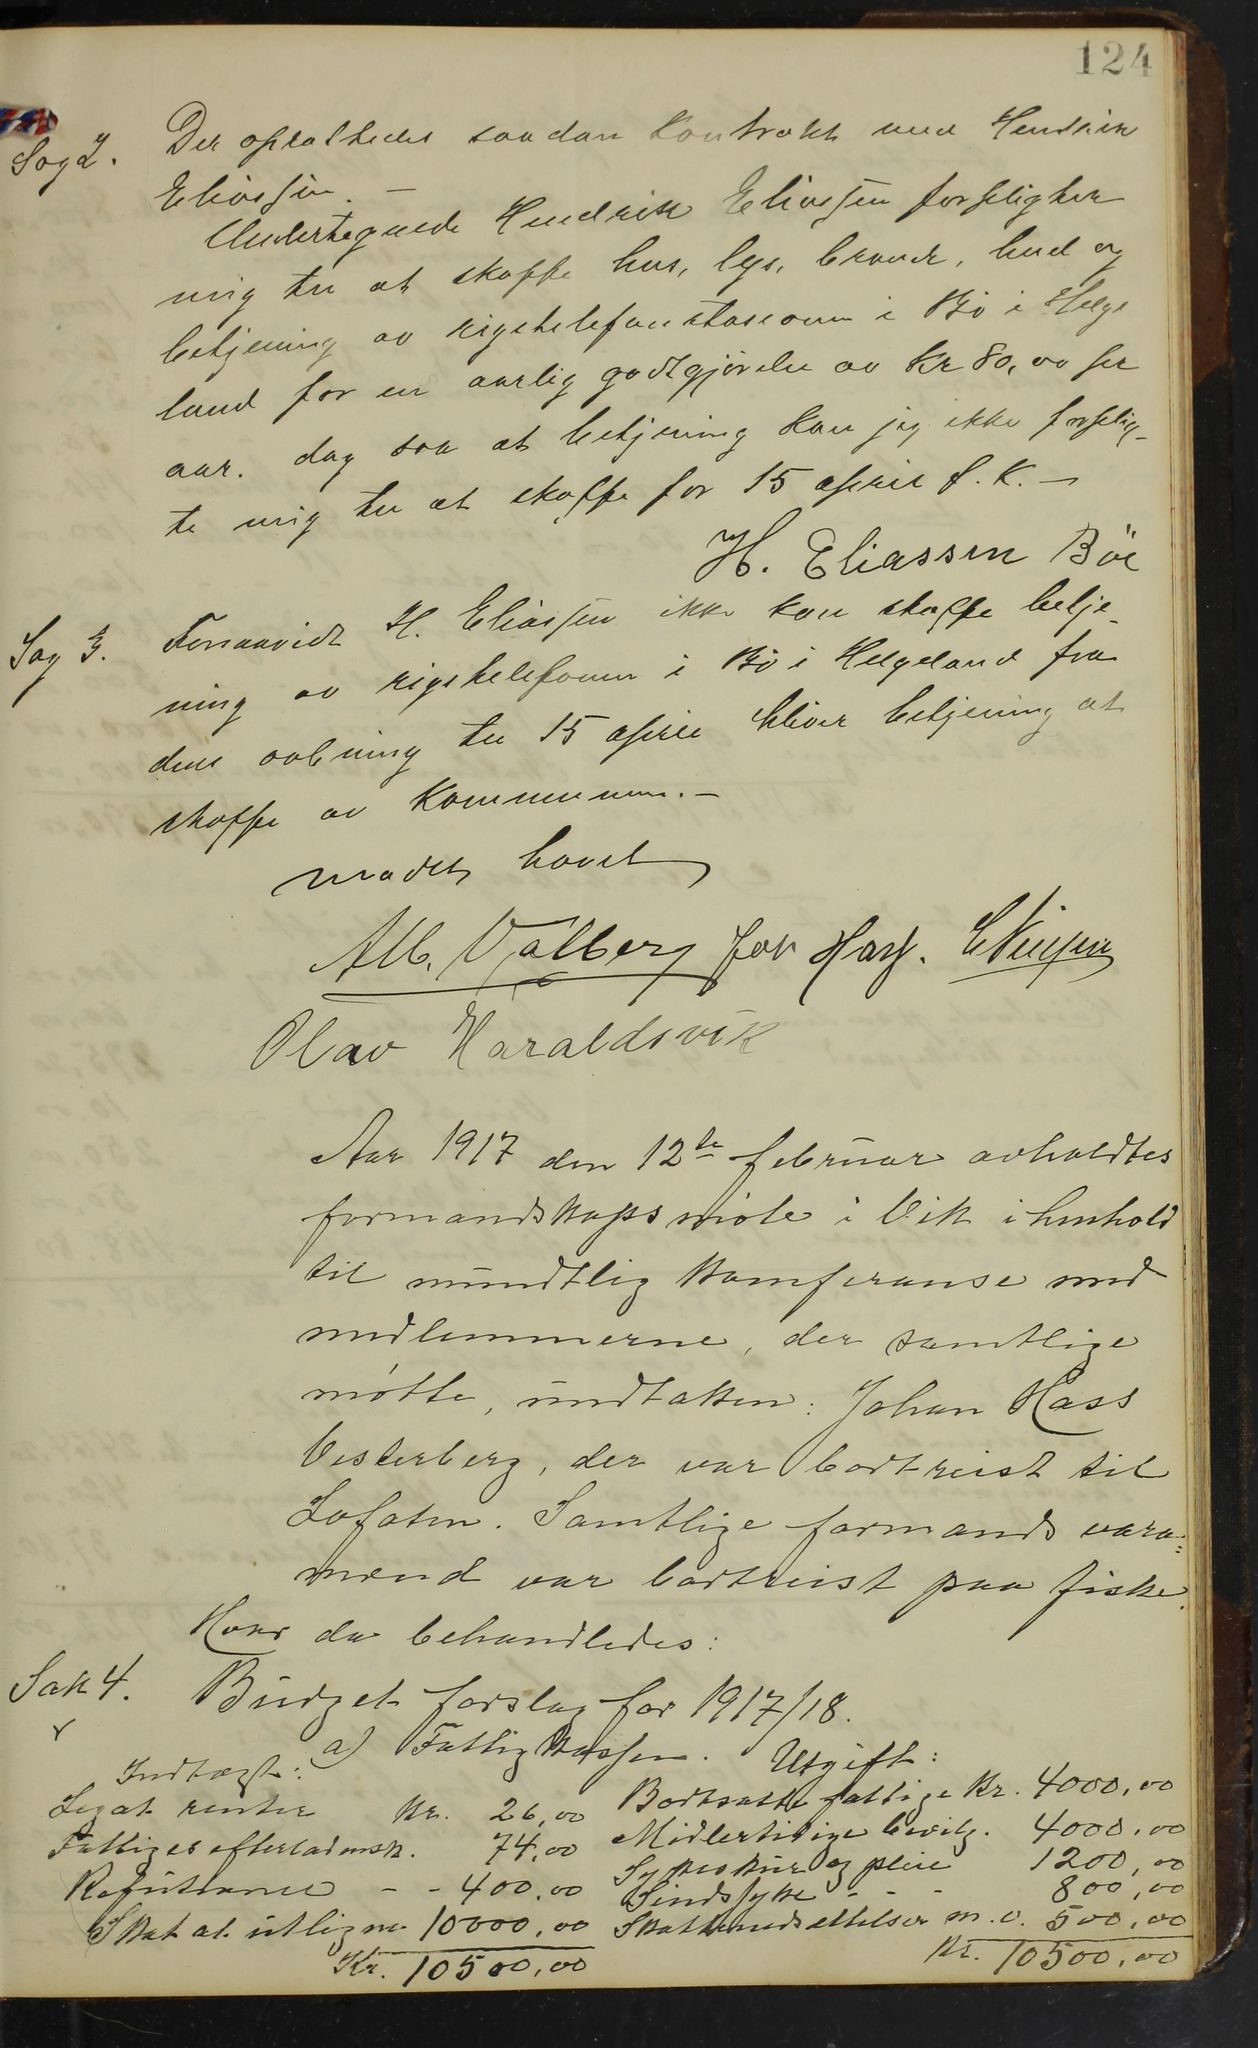 124
Sag 2. Der oprettedes saadan kontrakt med Hendrik
Eliassen. –
Undertegnede Hendrik Eliassen forpligter
mig til at skaffe hus, lys, brænde, bud og
betjening av rigstelefonstasionen i Bø i Helge
land for en aarlig godtgjørelse av kr 80,00 per
aar. dog saa at betjening kan jeg ikke forplig-
te mig til at skaffe før 15 april f. k. –
H. Eliassen Böe
Sag 3. Forsaavidt H. Eliassen ikke kan skaffe betje-
ning av rigstelefonen i Bø i Helgeland fra
dens aabning til 15 april bliver betjening at
skaffe av kommunen. –
mødet hævet
Alb. Valberg for Olav Haraldsvik
Aar 1917 den 12te februar avholdtes
formandskapsmøte i Vik i henhold
til mundtlig konferanse med
medlemmerne, der samtlige
møtte, undtaken: Johan Hass
Vesterberg, der var bortreist til
Lofoten. Samtlige formands vara-
mænd var bortreist paa fiske.
Hvor da behandledes:
Sak 4. Budget forslag for 1917/18.
a) Fattigkassen.
Indtægt: Utgift:
Legat renter kr. 26,00 Bortsatte fattige kr. 4000,00
Fattiges efterladensk. 74,00 Midlertidige bevilg. 4000,00
Refusioner - - 400,00 Sykeskur og pleie 1200,00
Skat at utligne 10000,00 Sindssyke - - - 800,00
Skattenedsættelser m.v. 500,00
Kr. 10500,00 Kr. 10500,00